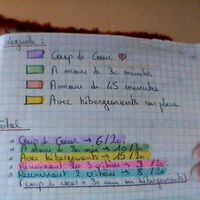 Légende :
Coup de Coeur
A moins de 30 minutes
A moins de 45 minutes
Avec hébergements sur place
Total
Coup de Coeur → 6/20
A moins de 30 min → 10/20
Avec hébergements → 15/20
Réunissant les 3 critères → 3/20
Réunissant 2 critères → 8/20
(coup de coeur + 30 min ou hébergements)